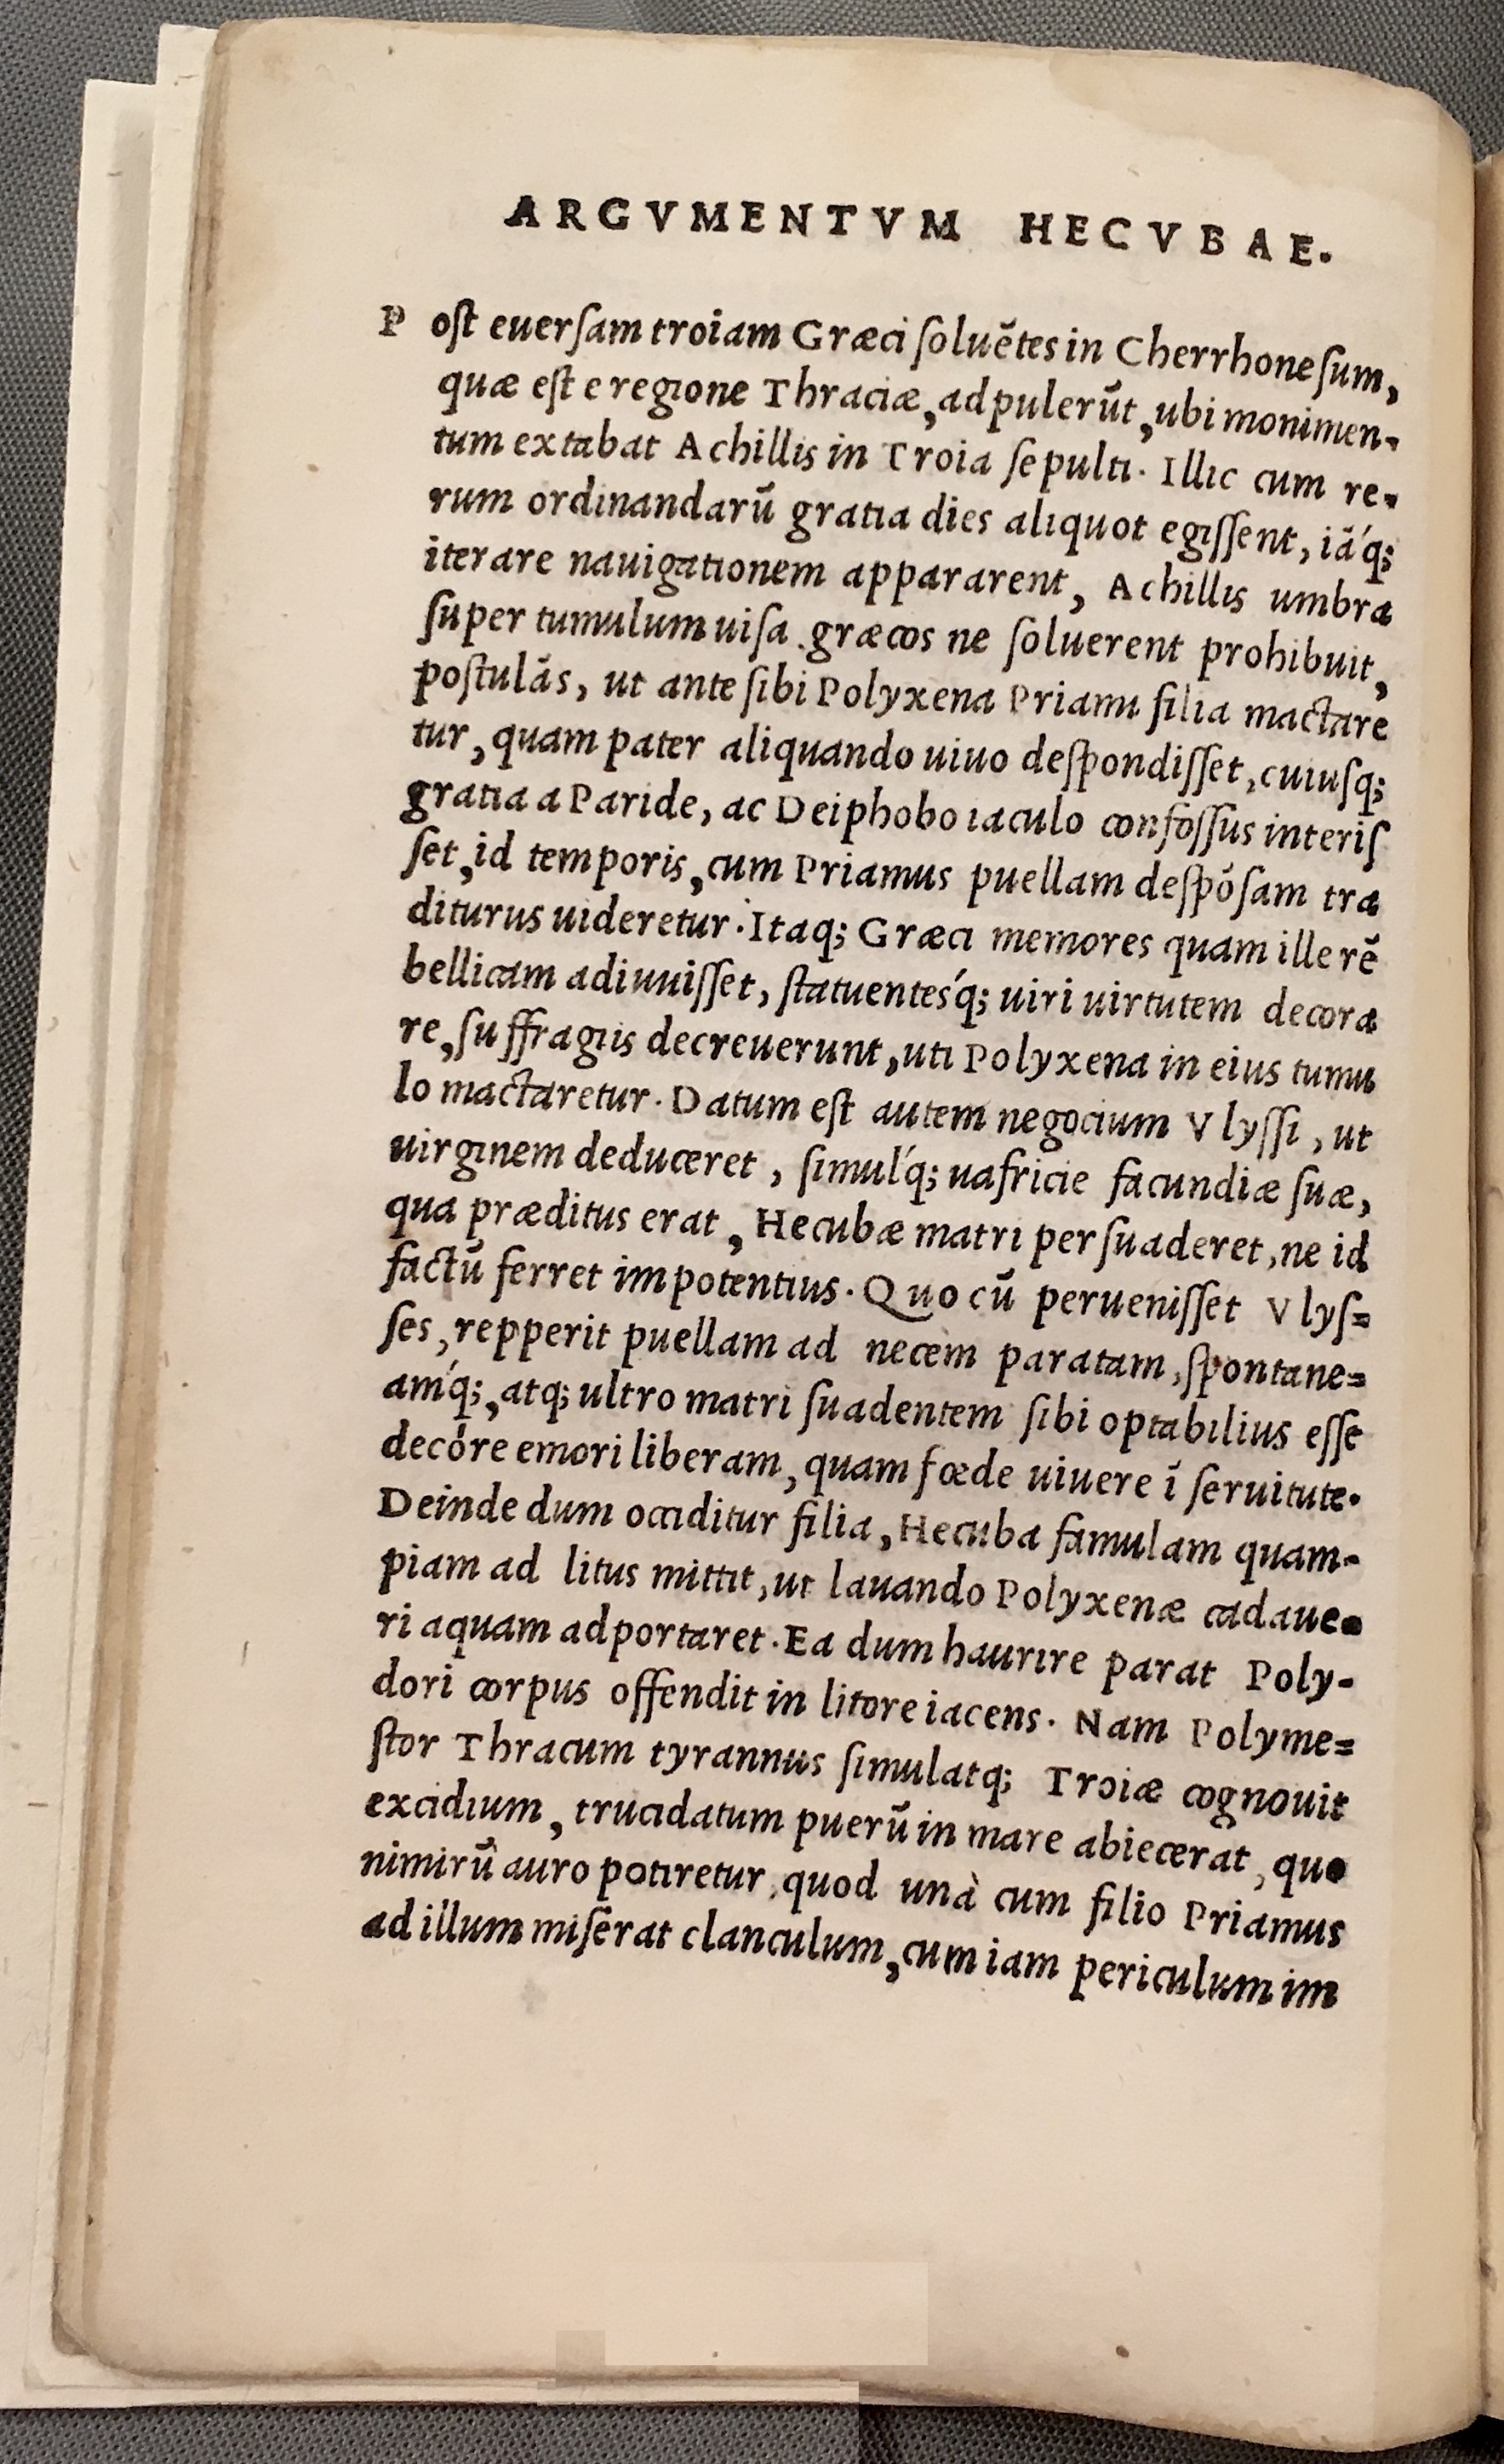 ARGVMENTVM HECVBAE.
Post euerſam troiam Græci ſoluẽtes in Cherrhoneſum,
quæ eſt e regione Thraciæ, adpulerũt, ubi monimen-
tum extabat Achillis in Troia ſepulti. Illic cum re-
rum ordinandarũ gratia dies aliquot egiſſent, iã́q;
iterare nauigationem appararent, Achillis umbra
ſuper tumulum uiſa græcos ne ſoluerent prohibuit,
poſtulãs, ut ante ſibi Polyxena Priami filia mactare
tur, quam pater aliquando uiuo deſpondiſſet, cuiuſq;
gratia a Paride, ac Deiphobo iaculo confoſſus interiſ
ſet, id temporis, cum Priamus puellam deſpõſam tra
diturus uideretur. Itaq; Græci memores quam ille rẽ
bellicam adiuuiſſet, ſtatuentesq́; uiri uirtutem decora
re, ſuffragiis decreuerunt, uti Polyxena in eius tumu
lo mactaretur. Datum eſt autem negocium Vlyſſi, ut
uirginem deduceret, ſimulq́; uafricie facundiæ ſuæ,
qua præditus erat, Hecubæ matri perſuaderet, ne id
factũ ferret impotentius. Quo cũ perueniſſet Vlyſ=
ſes, repperit puellam ad necem paratam, ſpontane=
amq́;, atq; ultro matri ſuadentem ſibi optabilius eſſe
decóre emori liberam, quam fœde uiuere ĩ ſeruitute.
Deinde dum occiditur filia, Hecuba famulam quam-
piam ad litus mittit, ut lauando Polyxenæ cadaue-
ri aquam adportaret. Ea dum haurire parat Poly-
dori corpus offendit in litore iacens. Nam Polyme=
ſtor Thracum tyrannus ſimulatq; Troiæ cognouit
excidium, trucidatum puerũ in mare abiecerat, quo
nimirũ auro potiretur, quod unà cum filio Priamus
ad illum miſerat clanculum, cum iam periculum im